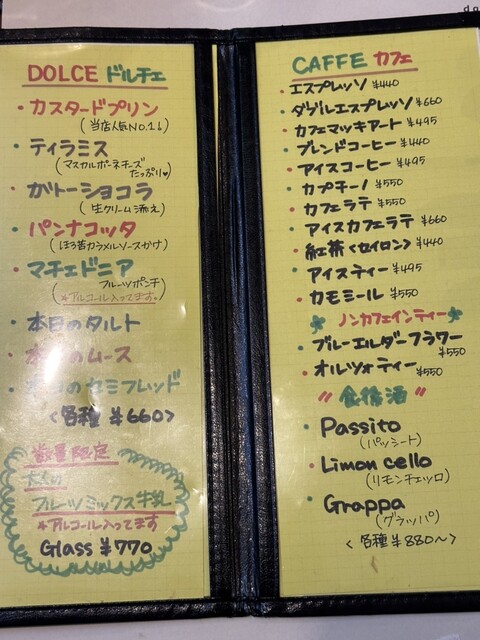 DOLCE ドルチェ
・カスタードプリン
(当店人気NO.1↓)
・ティラミス
(マスカルポーネチーズ
たっぷり♥)
・ガトーショコラ
(生クリーム添え)
・パンナコッタ
(ほろ苦カラメルソースかけ)
・マチェドニア
(フルーツポンチ
*アルコール入ってます。)
・本日のタルト
・本日のムース
・本日のセミフレッド
<各種 ¥660>
数量限定
大人の
フルーツミックス牛乳
*アルコール入ってます
Glass ¥770
CAFFE カフェ
・エスプレッソ ¥440
・ダブルエスプレッソ ¥660
・カフェマッキアート ¥495
・ブレンドコーヒー ¥440
・アイスコーヒー ¥495
・カプチーノ ¥550
・カフェラテ ¥550
・アイスカフェラテ ¥660
・紅茶<セイロン> ¥440
・アイスティー ¥495
・カモミール ¥550
ノンカフェインティー
・ブルーエルダーフラワー
¥550
・オルヅォティー ¥550
〃食後酒〃
・Passito
(パッシート)
・Limon cello
(リモンチェッロ)
・Grappa
(グラッパ)
<各種 ¥880~>